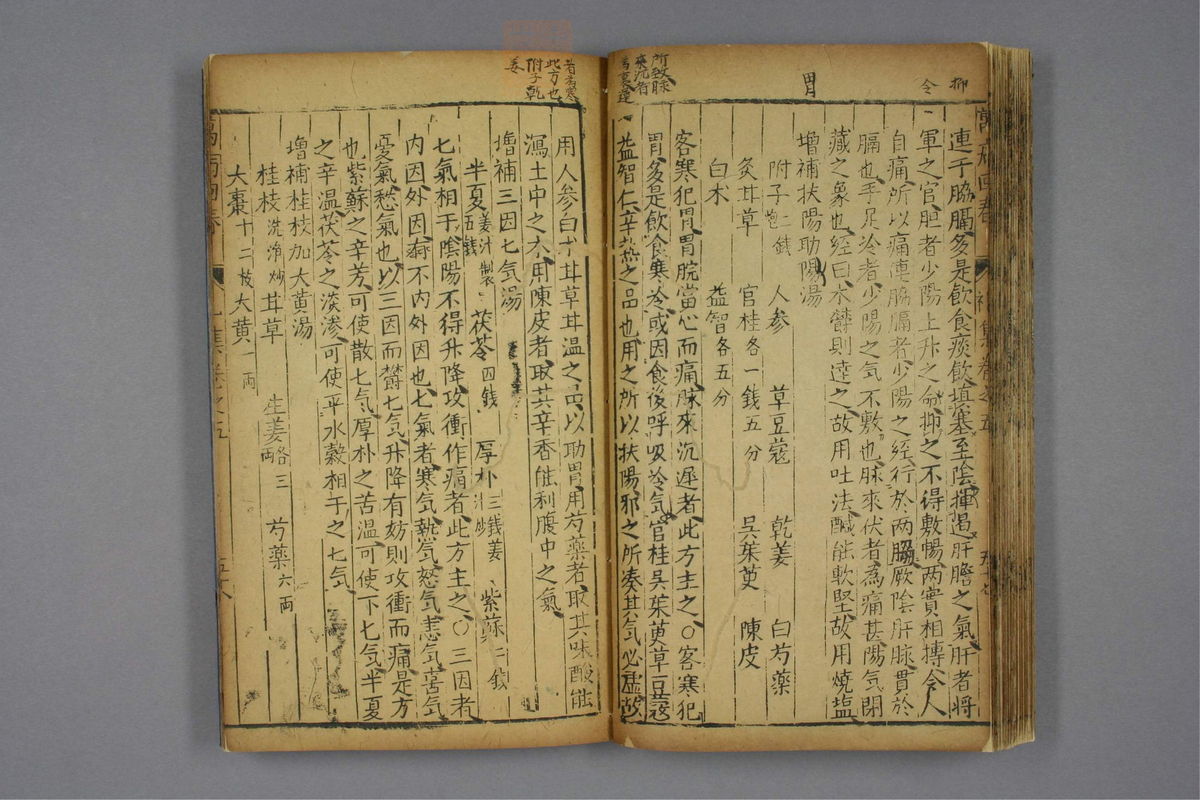 抑
令
胃
所致脉
来沉者
連于脇膈多是飲食痰飲填塞至陰揮遏肝膽之氣肝者將
軍之官胆者少陽上升之令抑之不得敷暢两實相摶令人
自痛所以痛連脇膈者少陽之經行於两脇厥陰肝脉貫於
膈也手足冷者少陽之気不敷也脉來伏者為痛甚陽気閉
藏之象也經曰木欝則達之故用吐法醎能軟堅故用燒塩
增補扶陽助陽湯
附子炮二錢 人参 草豆蔻 乾姜 白芍藥
炙甘草 官桂各一錢五分 呉茱萸 陳皮
白术 益智各五分
客寒犯胃胃脘當心而痛脉來沉遲者此方主之○客寒犯
胃多是飲食寒冷或因食後呼吸冷気官桂呉茱萸草豆蔻
益智仁辛热之品也用之所以扶陽邪之所凑其気必虛故
若為寒
此方也
附子乾
姜
用人参白术甘草甘温之品以助胃用芍藥者取其味酸能
瀉土中之木用陳皮者取其辛香能利腹中之氣
增補三因七気湯
半夏姜汁製五錢 茯苓四錢 厚朴三錢姜汁炒 紫蘇二錢
七氣相于陰陽不得升降攻衝作痛者此方主之○三因者
内因外因病不内外因也七気者寒気熱気怒気恚気喜気
憂氣愁気也以三因而欝七気升降有妨則攻衝而痛是方
也紫蘇之辛芳可使散七気厚朴之苦温可使下七気半夏
之辛温茯苓之淡渗可使平水榖相于之七気
增補桂枝加大黄湯
桂枝洗净炒 甘草 生姜各三两 芍藥六两
大棗十二枚 大黄一两